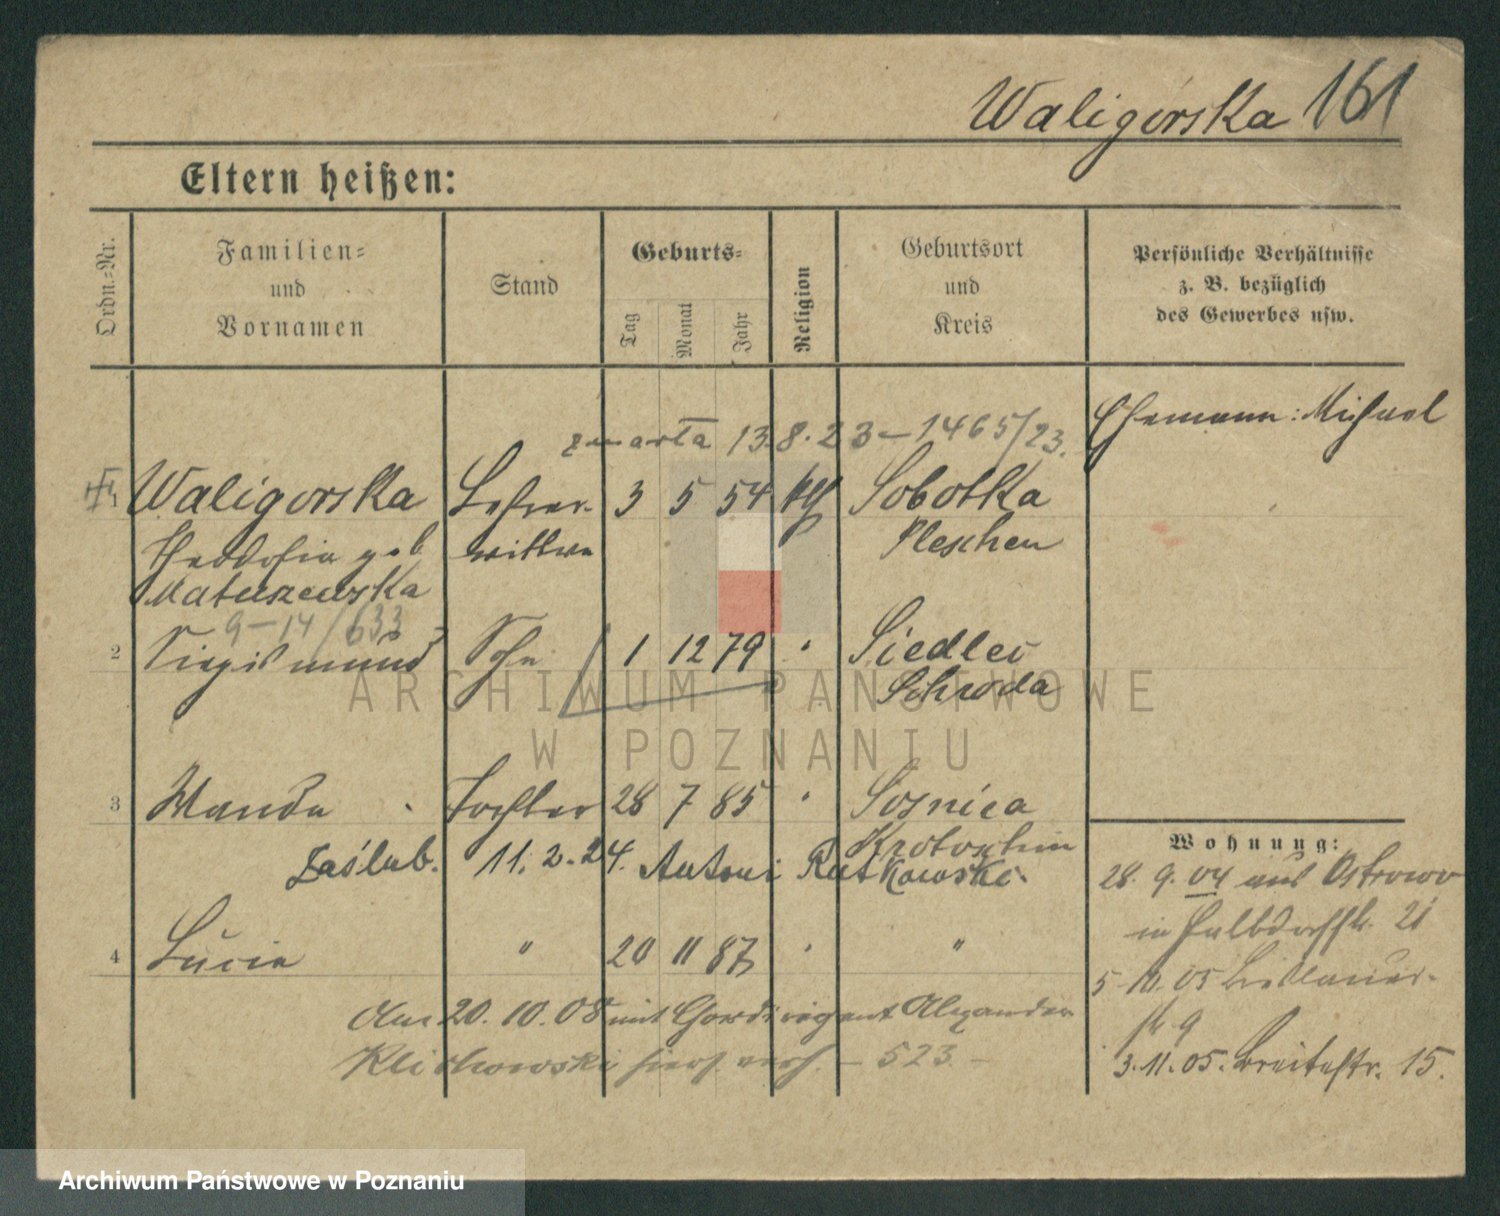 Waligórska 161
Eltern heißen:
Ordn.-Nr.
Familien-
und
Vornamen
Stand
Geburts-
Tag
Monat
Jahr
Religion
Geburtsort
und
Kreis
Persönliche Verhältnisse
z. B. bezüglich
des Gewerbes usw.
Ehemann: Michael
zmarła 13.8.23 – 1465/23.
Waligorska Lehrer- 3 5 54 kth Sobotka
Theodosia geb wittwe Pleschen
Matuszewska
9–14/633
2 Sigismund Sohn 1 12 79 " Siedlec
Schroda
3 Wanda Tochter 28 7 85 " Sosnica
Krotoschin
Zaślub. 11.2.24. Antoni Rutkowski.
4 Lucie " 20 11 87 " "
am 20.10.08 mit Alexander
Klichowski hiers. verh. – 523 –
Wohnung:
28. 9. 04 aus Ostrowo
in 21
5 10.05
str 9
3.11.05. Breitestr. 15.
ARCHIWUM PAŃSTWOWE
W POZNANIU
Archiwum Państwowe w Poznaniu